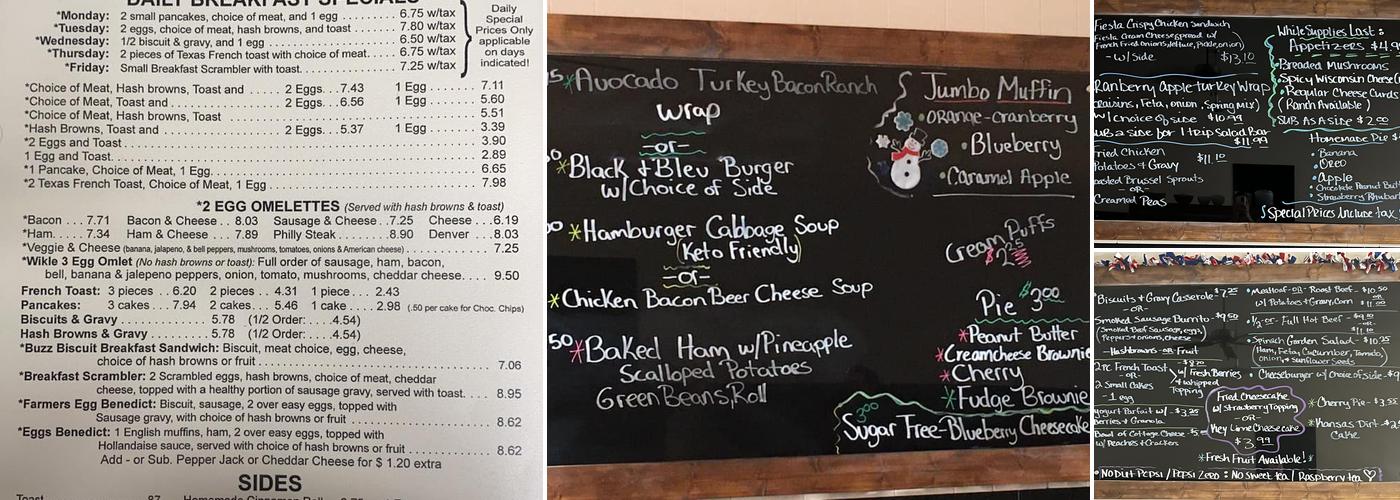 DAILY BREAKFAST SPECIALS
*Monday: 2 small pancakes, choice of meat, and 1 egg . . . . . . . . . 6.75 w/tax
*Tuesday: 2 eggs, choice of meat, hash browns, and toast . . . . . . . . 7.80 w/tax
*Wednesday: 1/2 biscuit & gravy, and 1 egg . . . . . . . . 6.50 w/tax
*Thursday: 2 pieces of Texas French toast with choice of meat. . . . . 6.75 w/tax
*Friday: Small Breakfast Scrambler with toast. . . . . . . . 7.25 w/tax
Daily
Special
Prices Only
applicable
on days
indicated!
*Choice of Meat, Hash browns, Toast and . . . . . . 2 Eggs. . .7.43 1 Egg . . . . . . . 7.11
*Choice of Meat, Toast and . . . . . . 2 Eggs. . .6.56 1 Egg . . . . . . . 5.60
*Choice of Meat, Hash browns, Toast . . . . . . 5.51
*Hash Browns, Toast and . . . . . . 2 Eggs. . .5.37 1 Egg . . . . . . . 3.39
*2 Eggs and Toast . . . . . . 3.90
1 Egg and Toast. . . . . . 2.89
*1 Pancake, Choice of Meat, 1 Egg. . . . . . 6.65
*2 Texas French Toast, Choice of Meat, 1 Egg . . . . . . 7.98
*2 EGG OMELETTES (Served with hash browns & toast)
*Bacon . . . 7.71 Bacon & Cheese . . 8.03 Sausage & Cheese . .7.25 Cheese . . 6.19
*Ham. . . . 7.34 Ham & Cheese . . . 7.89 Philly Steak . . . . . . 8.90 Denver . . 8.03
*Veggie & Cheese (banana, jalapeno, & bell peppers, mushrooms, tomatoes, onions & American cheese) . . . . . . 7.25
*Wikle 3 Egg Omlet (No hash browns or toast): Full order of sausage, ham, bacon,
bell, banana & jalepeno peppers, onion, tomato, mushrooms, cheddar cheese. . . . 9.50
French Toast: 3 pieces . . 6.20 2 pieces . . 4.31 1 piece . . . 2.43
Pancakes: 3 cakes . . . 7.94 2 cakes . . 5.46 1 cake . . . . 2.98 (.50 per cake for Choc. Chips)
Biscuits & Gravy . . . . . . 5.78 (1/2 Order: . . . .4.54)
Hash Browns & Gravy . . . . . . 5.78 (1/2 Order: . . . .4.54)
*Buzz Biscuit Breakfast Sandwich: Biscuit, meat choice, egg, cheese,
choice of hash browns or fruit . . . . . . 7.06
*Breakfast Scrambler: 2 Scrambled eggs, hash browns, choice of meat, cheddar
cheese, topped with a healthy portion of sausage gravy, served with toast. . . . 8.95
*Farmers Egg Benedict: Biscuit, sausage, 2 over easy eggs, topped with
Sausage gravy, with choice of hash browns or fruit . . . . . . 8.62
*Eggs Benedict: 1 English muffins, ham, 2 over easy eggs, topped with
Hollandaise sauce, served with choice of hash browns or fruit . . . . . . 8.62
Add - or Sub. Pepper Jack or Cheddar Cheese for $ 1.20 extra
SIDES
*Avocado Turkey Bacon Ranch
Wrap
-or-
*Black & Bleu Burger
w/Choice of Side
*Hamburger Cabbage Soup
(Keto Friendly)
-or-
*Chicken Bacon Beer Cheese Soup
50 *Baked Ham w/Pineapple
Scalloped Potatoes
Green Beans, Roll
Jumbo Muffin
•Orange-Cranberry
•Blueberry
•Caramel Apple
Cream Puffs
Pie $3.00
*Peanut Butter
*Creamcheese Brownie
*Cherry
*Fudge Brownie
3.00
Sugar Free-Blueberry Cheesecake
Fiesta Crispy Chicken Sandwich
Fiesta Cream Cheese spread w/
French Fried Onions, lettuce, Pickle, onion)
- w/ Side $13.10
Cranberry Apple Turkey Wrap
(raisins, Feta, onion, Spring mix)
w/ choice of side $10.99
Sub a side for 1 trip Salad Bar
$11.99
Fried Chicken
Potatoes & Gravy $11.10
Roasted Brussel Sprouts
- OR -
Creamed Peas
While Supplies Last:
Appetizers $4.9
•Breaded Mushrooms
•Spicy Wisconsin Cheese
•Regular Cheese Curds
(Ranch Available)
SUB AS A Side $2.00
Homemade Pie
•Banana
•Oreo
•Apple
•Chocolate Peanut
•Strawberry Rhubarb
Special Prices Include tax
*Biscuits & Gravy Casserole- $7.25
-OR-
Smoked Sausage Burrito- $9.50
(Smoked Beef Sausage, eggs,
Peppers & onions, cheese
-Hashbrowns -OR- Fruit
2 pc French Toast
-OR-
2 Small Cakes
-1 egg
w/ Fresh Berries
+ whipped
Topping
Yogurt Parfait w/ - $3.25
Berries & Granola
Bowl of Cottage Cheese
w/ Peaches & Crackers
•Meatloaf -OR- Roast Beef - $10.50
w/ Potatoes & Gravy, Corn
•1/2 -or- Full Hot Beef -
$11.10
•Spinach Garden Salad - $10.25
(Ham, Feta, Cucumber, Tomato,
Onion, + sunflower Seeds
•Cheeseburger w/ choice of side-$9
Fried Cheesecake
w/ Strawberry Topping
-OR-
Key Lime Cheesecake
$3.99
*Cherry Pie- $3.55
*Kansas Dirt
Cake
*Fresh Fruit Available!*
•No Diet Pepsi / Pepsi Zero : No Sweet tea / Raspberry tea ♡